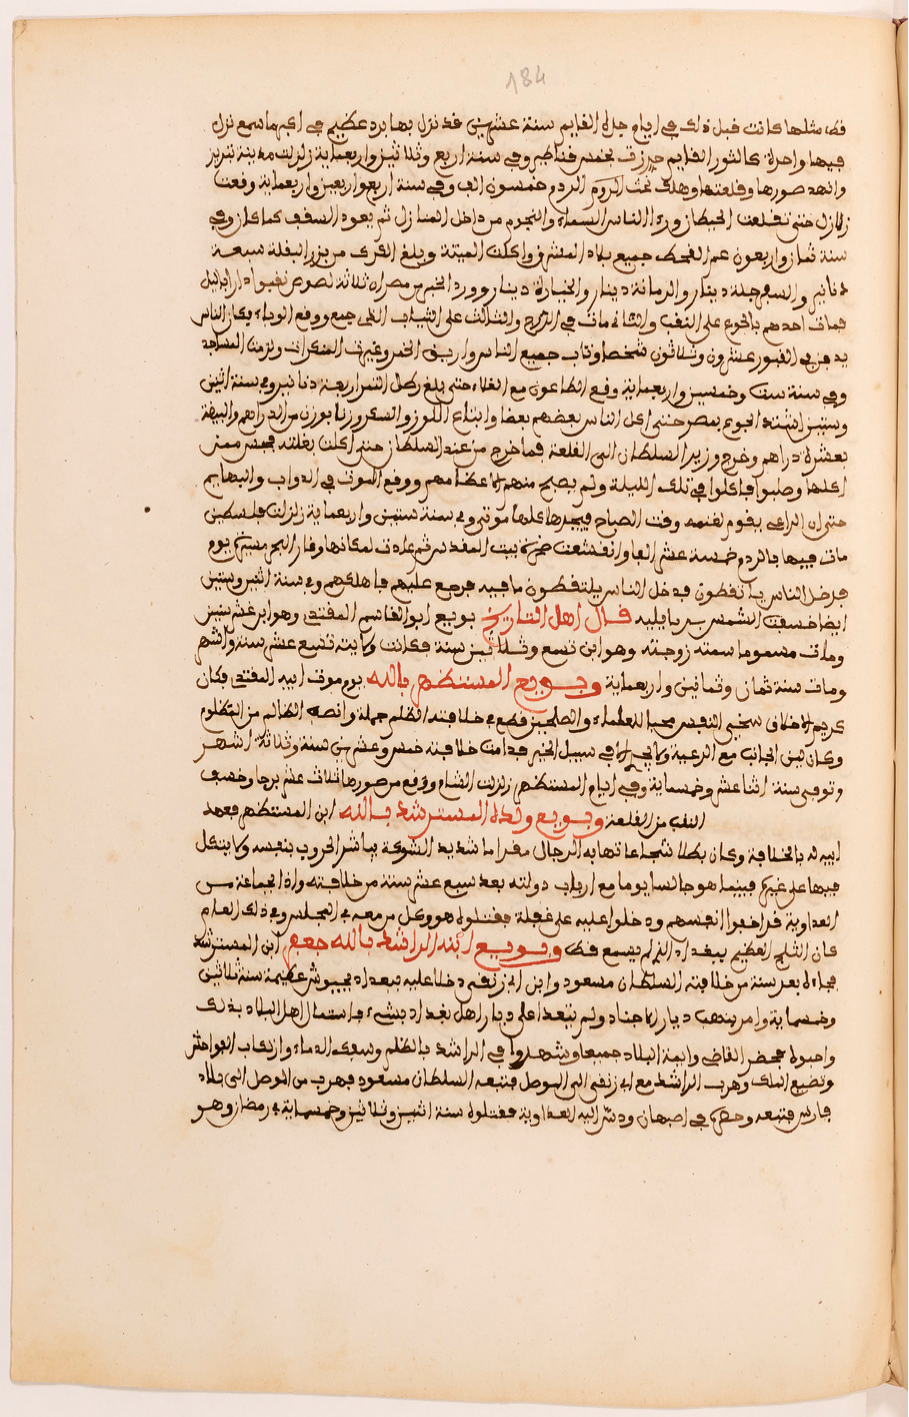 184
قط مثلها كانت قبل ذلك في ايام جده القايم سنة عشرين قد نزل بها برد عظيم في اكبر ما سمع نزل
فيها واحدة كالثور القايم وفي سنة اربع وثلاثين واربعماية زلزلت مدينة تبريز
وانهد صورها وقلعتها وهلك تحت الردم خمسون الف وفي سنة اربع واربعين واربعماية وقعت
زلازل حتى تقلعت الحيطان ورءا الناس السماء والنجوم من داخل المنازل ثم يعود السقف كما كان وفي
سنة ثمان واربعون عم القحط جميع بلاد المشرق واكلت الميتة وبلغ سبعة
دنانير والسفرجلة دينار والرمانة دينار والخيارة دينار وورد الخبر من مصر ان ثلاثة لصوص نقبوا دارا بالليل
فمات احدهم بالجوع على النقب والثاني مات في الدرج والثالث على الثياب التي جمع ووقع الوباء فكان الناس
عشرون وثلاثون شخصا وتاب جميع الناس واريق الخمر وغيره من المنكرات ولزمت المساجد
وفي سنة ست وخمسين واربعماية وقع الطاعون مع الغلاء حتى بلغ رطل التمر اربعة دنانير وفي سنة اثنين
وستين اشتد الجوع بمصر حتى اكل الناس بعضهم بعضا اللوز والسكر وزنا بوزن من الدراهم والبيضة
بعشرة دراهم وخرج وزير السلطان الى القلعة فما خرج من عند السلطان حتى اكلت بغلته
اكلها وصلبوا فاكلوا في تلك الليلة ولم يصبح منهم الا عظامهم ووقع الموت في الدواب والبهايم
حتى ان الراعي يقوم لغنمه وقت الصباح فيجدها كلها موتى وفي سنة ستين واربعماية زلزلت فلسطين
مات فيها بالردم خمسة عشر الفا وانشقت صخرة بيت المقدس ثم عادت لمكانها وغار البحر مسيرة يوم
فدخل الناس يلتقطون فدخل الناس يلتقطون ما فيه فرجع عليهم فاهلكهم وفي سنة اثنين وستين
ايضا خسفت الشمس قال اهل التاريخ بويع ابو القاسم المقتدي وهو ابن عشر سنين
ومات مسموما سمته زوجته وهو ابن تسع وثلاثين سنة فكانت ولايته تسع عشر سنة واشهر
ومات سنة ثمان وثمانين واربعماية وبويع المستظهر بالله يوم موت ابيه المقتدي فكان
كريم الاخلاق سخي النفس محبا للعلماء والصالحين قطع في خلافته الظلم جملة وانصف الظالم من المظلوم
وكان لين الجانب مع الرعية ولا في سبيل الخير فدامت خلافته خمس وعشرين سنة وثلاثة اشهر
وتوفي سنة اثنا عشر وخمسماية وفي ايام المستظهر زلزلت الشام ووقع من صورها ثلاث عشر برجا وخسف
النقب من القلعة وبويع ولده المسترشد بالله ابن المستظهر فعهد
ابيه له بالخلافة وكان بطلا شجاعا تهابه الرجال مقداما شديد الشوكة يباشر الحروب بنفسه ولا يتكل
فيها على غيره فبينما هو جالسا يوما مع ارباب دولته بعد سبع عشر سنة من خلافته واذا الجماعة من
الفداوية قد اخفوا انفسهم ودخلوا عليه على غفلة فقتلوه هو وكل من معه في المجلس وفي ذلك العام
كان الثلج العظيم ببغداد الذي لم يسمع قط وبويع ابنه الراشد بالله جعفر ابن المسترشد
فجاءه بعد سنة من خلافته السلطان مسعود وابن زنقي دخلا عليه ببغداد بجيوش عظيمة سنة ثلاثين
وخمسماية وامر بنهب ديار الاجناد ولم يتعدا على ديار اهل بغداد بشيء فاستمال اهل البلاد بذلك
واحبوه فحضر القاضي وايمة البلاد جميعا وشهدوا في الراشد بالظلم وسفك الدماء وارتكاب الفواحش
وتضييع الملك وهرب الراشد مع زنقي الى الموصل فتبعه السلطان مسعود فهرب من الموصل الى بلاد
فارس فتبعه وحصره في اصبهان ودس اليه الفداوية فقتلوه سنة اثنين وثلاثين وخمسماية في رمضان وهو